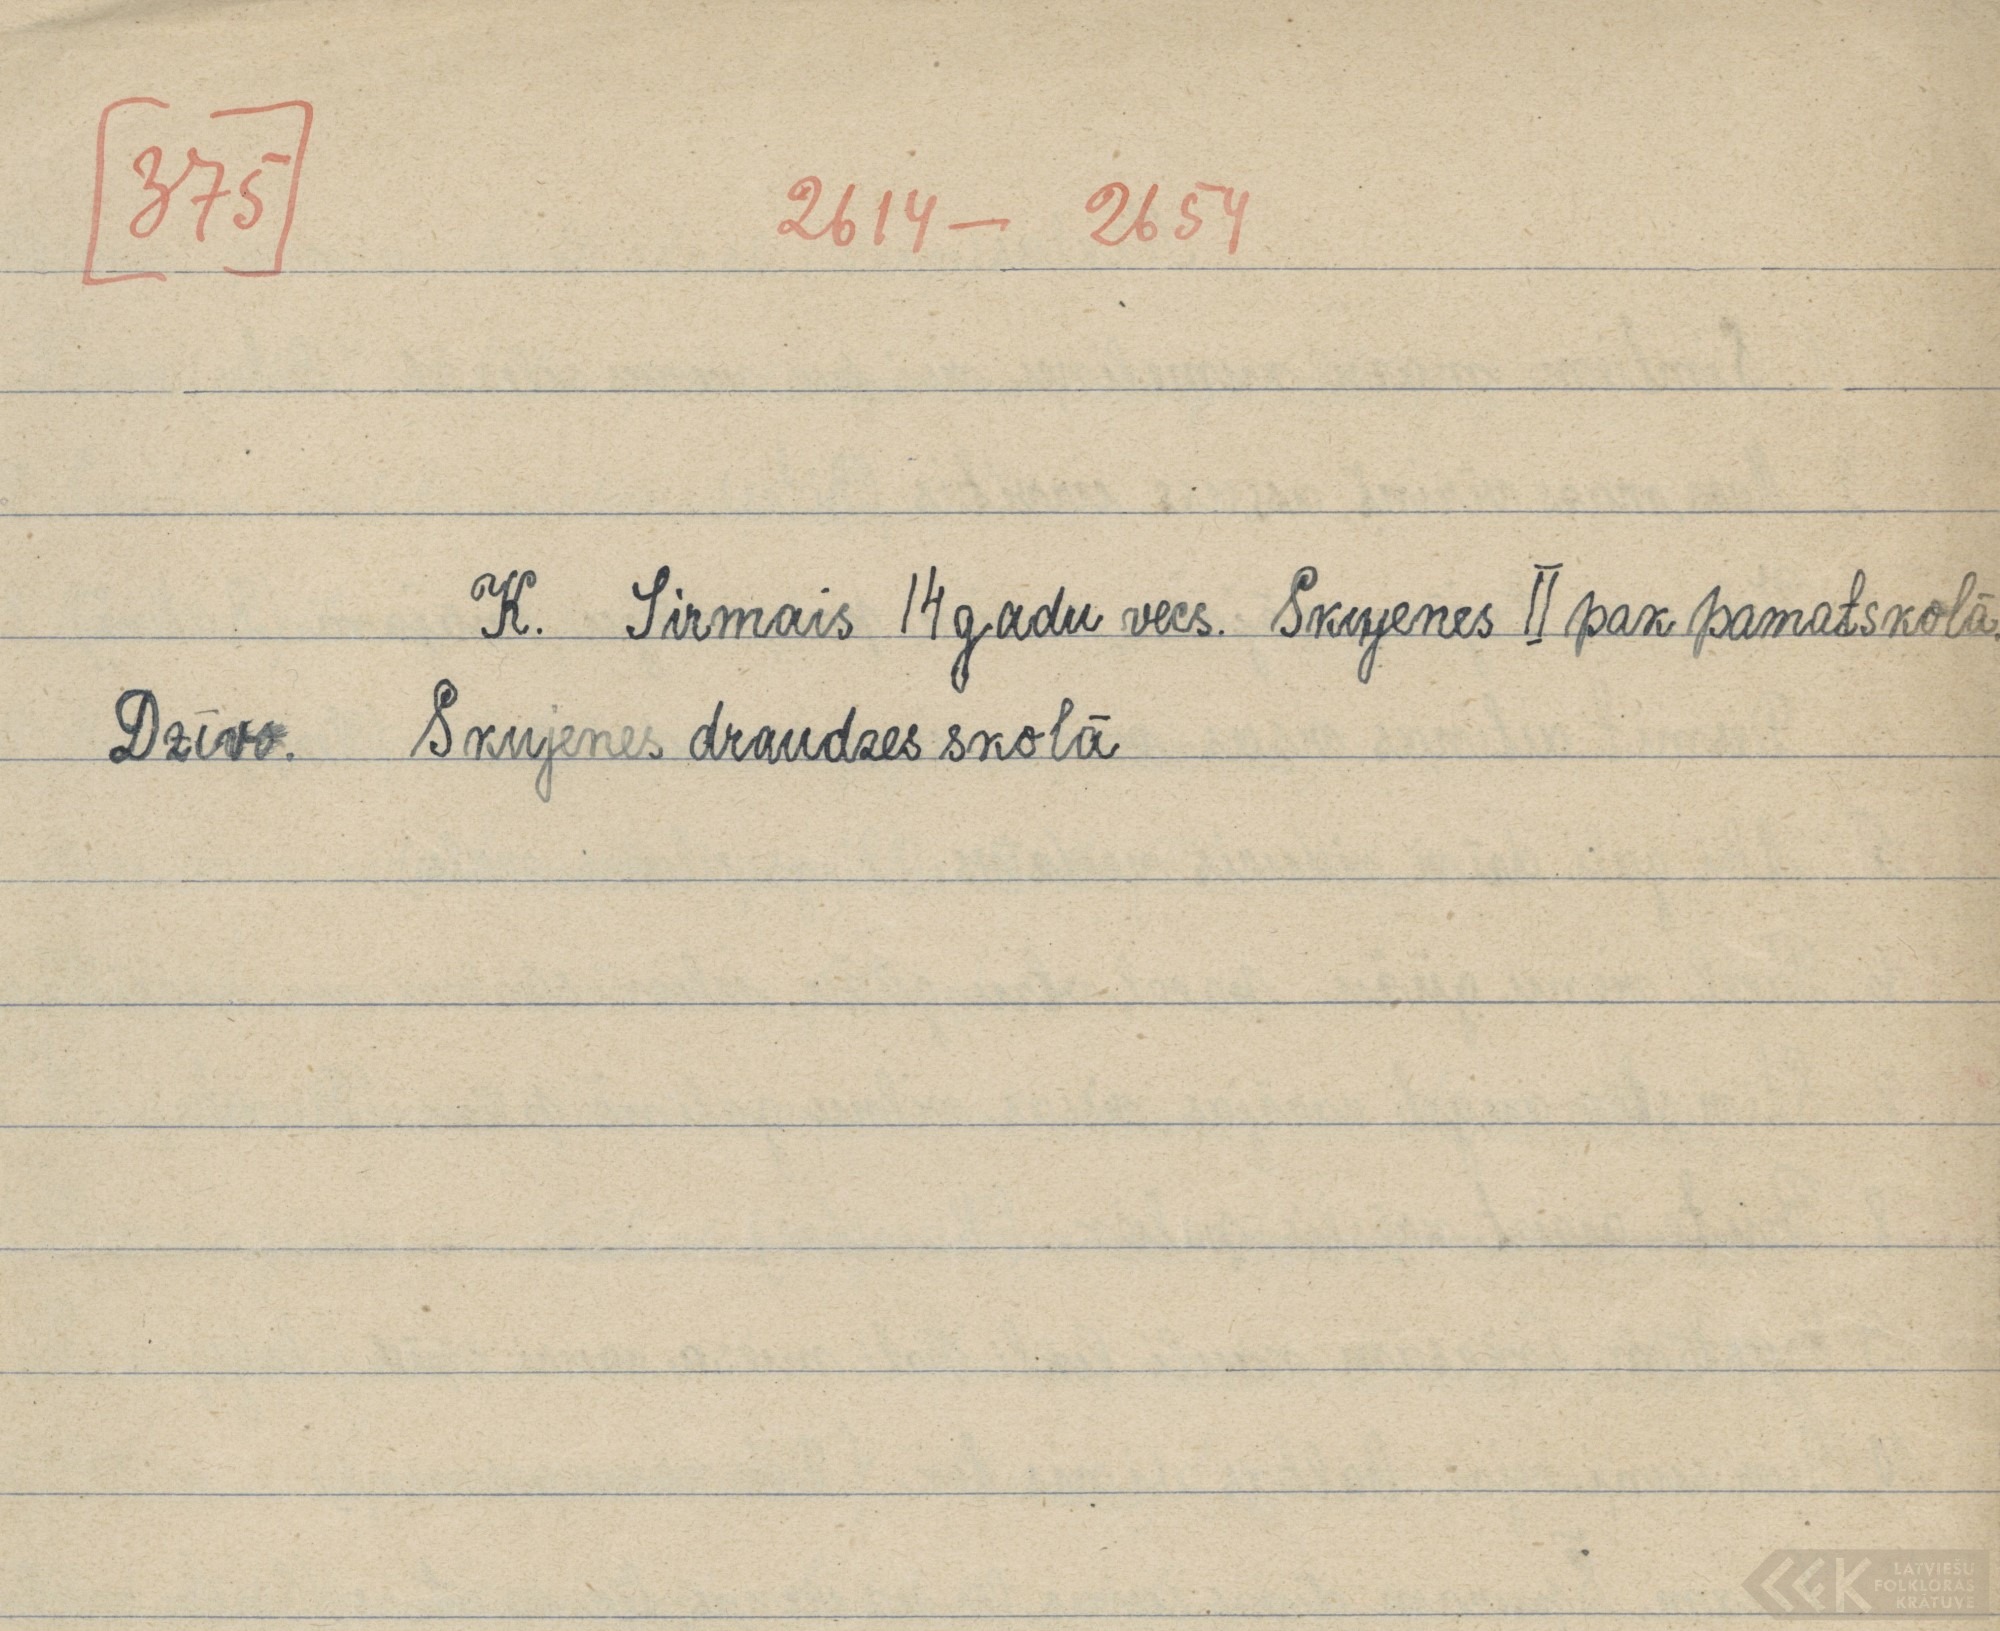 [375] 2614 – 2654
K. Sirmais 14 gadu vecs. Skujenes II pak pamatskolā.
Dzīvo. Skujenes draudzes skolā
LATVIEŠU
FOLKLORAS
KRĀTUVE